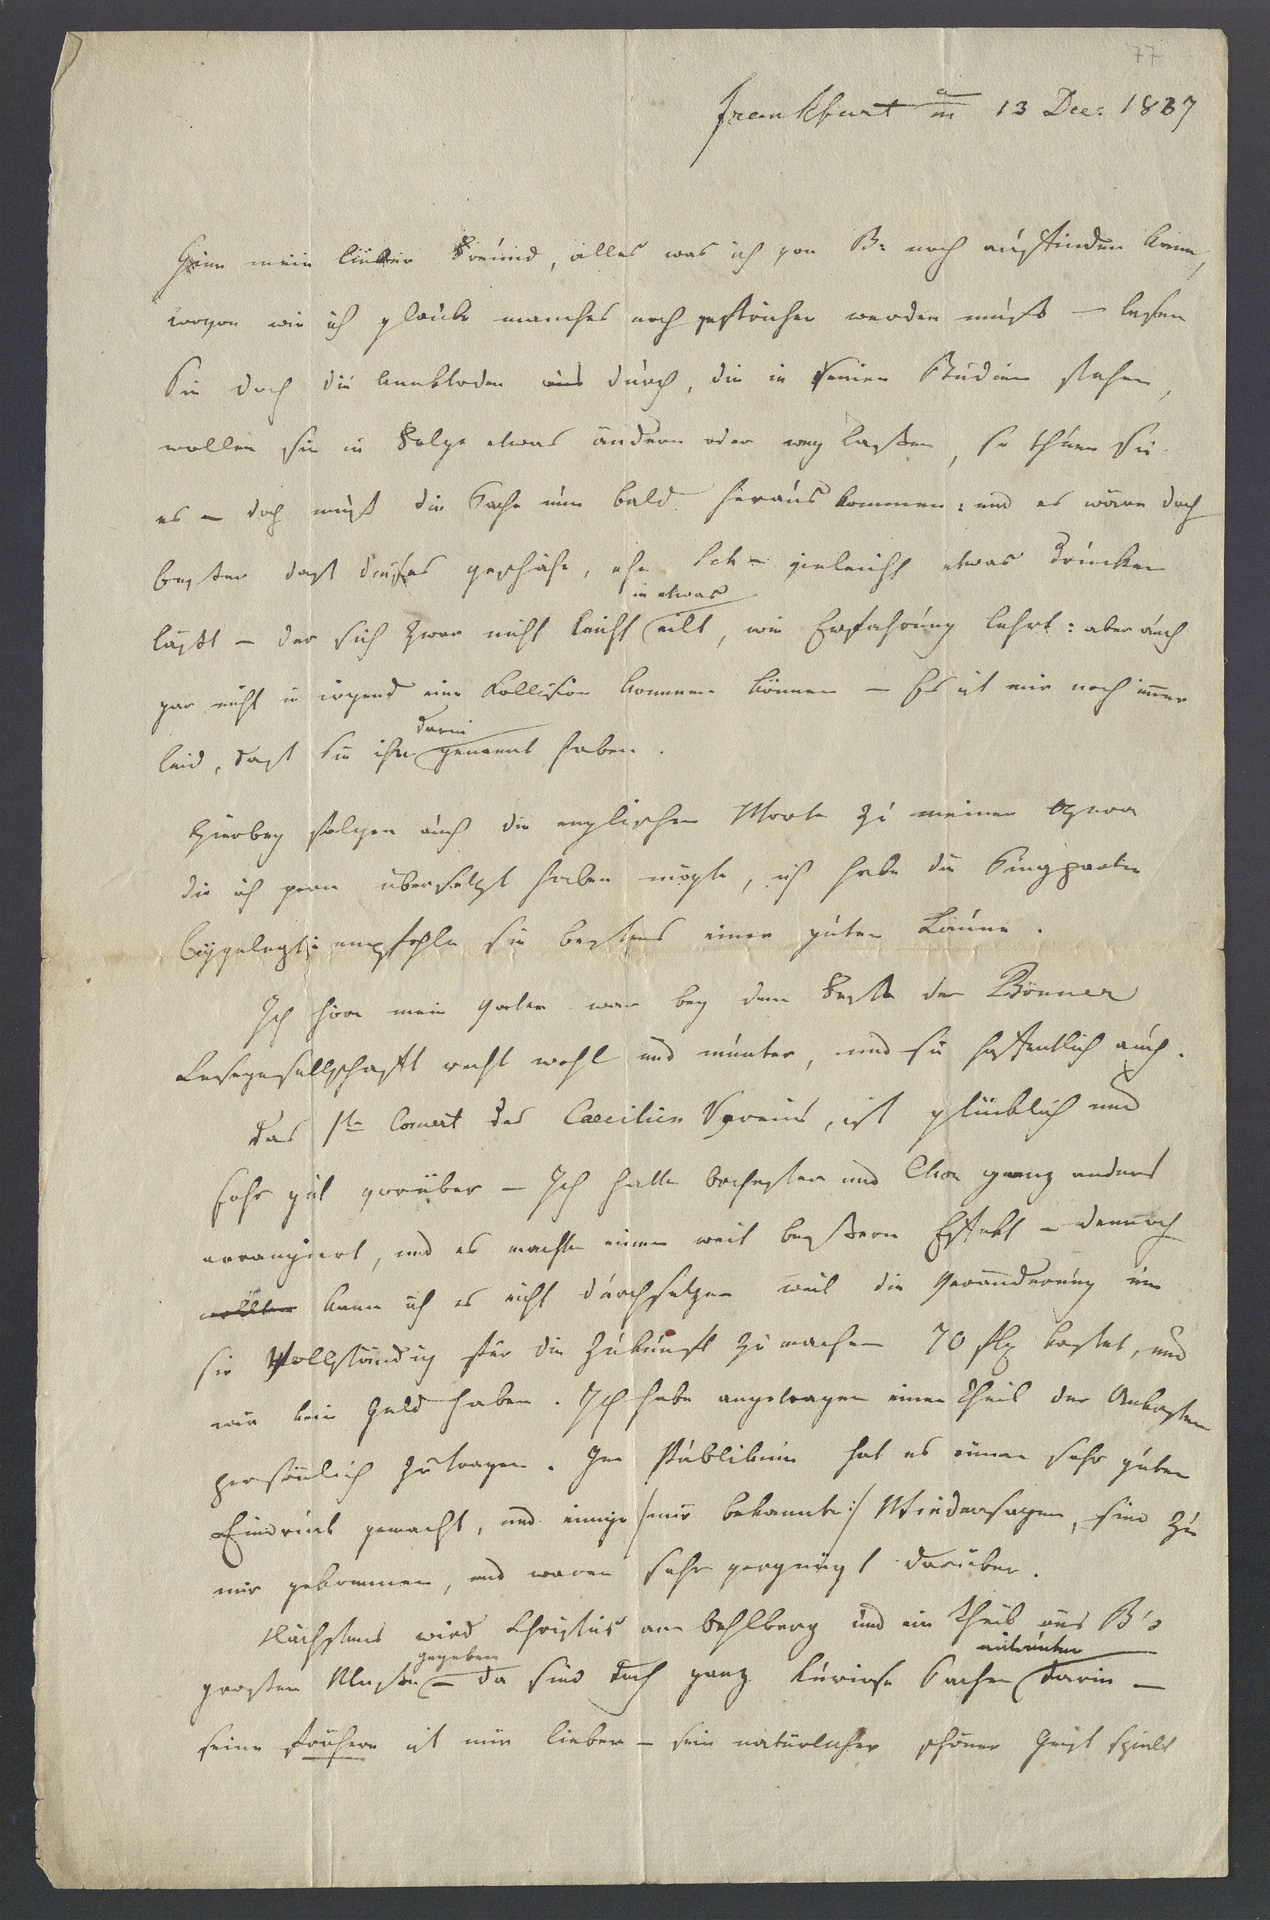 77
Frankfurt a m 13 Dec: 1837
Hier mein lieber Freund, alles was ich von B: noch auffinden kann,
wovon wie ich glaube manches noch gestrichen werden müßte – lesen
Sie doch die Anekdoten durch, die in seinen Studien stehen,
wollen sie in Folge etwas ändern oder weg laßen, so thuen sie
es – doch muß die Sache nun bald heraus kommen: und es wäre doch
besser daß dieses geschähe, ehe Sch– vieleicht etwas drucken
läßt – der sich zwar nicht leicht in etwas eilt, wie Erfahrung lehrt: aber auch
gar nicht in irgend eine Collision kommen können – Es ist mir noch immer
leid, daß Sie ihn darin genannt haben.
Hierbey folgen auch die englischen Worte zu meiner Opera
die ich gern übersetzt haben mögte, ich habe die Singpartie
beygelegt: empfehle sie bestens einer guten Laune.
Ich höre mein Vater war bey dem Feste der Bönner
Lesegesellschaft recht wohl und munter, und sie hoffentlich auch.
Das 1te Concert des Caecilien Vereins, ist glücklich und
sehr gut vorüber – Ich hatte Orchester und Chor ganz anders
arrangiert, und es machte einen weit beßern Effekt – dennoch
kann ich es nicht durchsetzen weil die Veränderung um
sie Vollständig für die Zukunft zu machen 70 flg kostet, und
wir kein Geld haben. Ich habe angetragen einen Theil der Unkosten
persönlich zu tragen. Im Publikum hat es einen sehr guten
Eindruck gemacht, und einige /:mir bekannte:/ Wiedersager, sind zu
mir gekommen, und waren sehr vergnügt darüber.
Nächstens wird Christus am Oehlberg und ein Theil aus B's
großer Messe gegeben – da sind doch ganz kuriose Sachen mitunter darin –
seine frühere ist mir lieber – sein natürlicher schöner Geist spielt